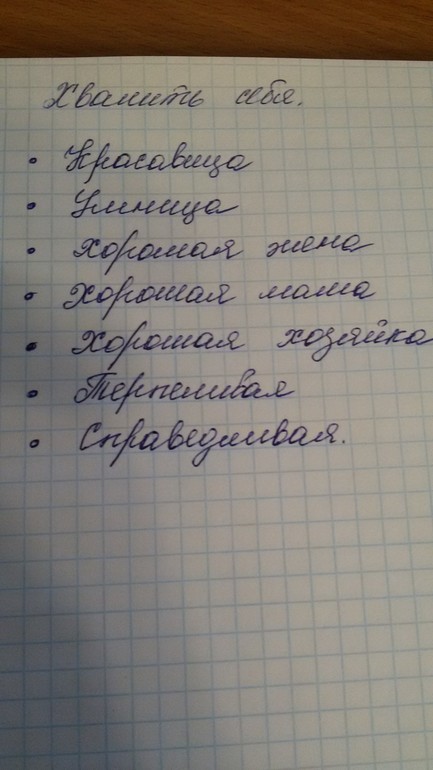 Хвалить себя.
• Красавица
• Умница
• Хорошая жена
• Хорошая мама
• Хорошая хозяйка
• Терпеливая
• Справедливая.